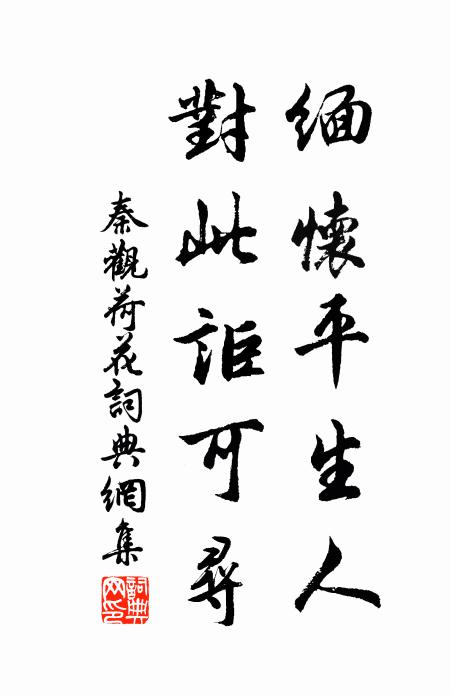 緬懷平生人
對此詎可尋
秦觀荷花詞典網集
詞典網印